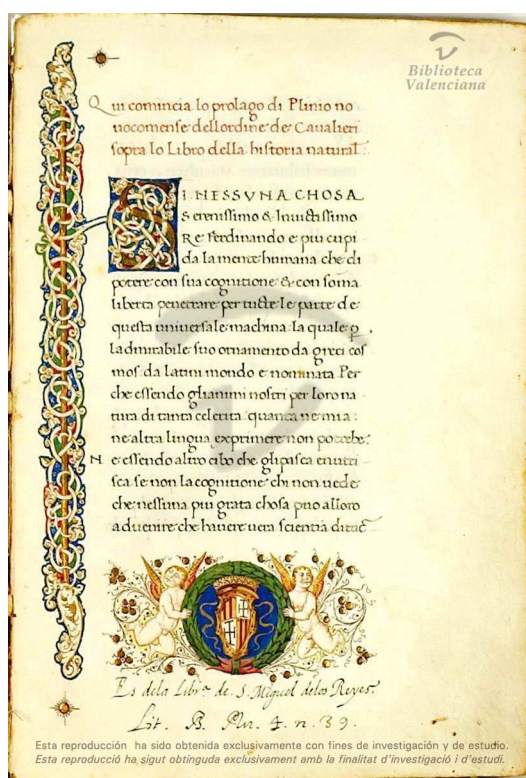 Biblioteca
Valenciana
Qui comincia lo prolago di Plinio no
uocomense dellordine de Cavalieri
sopra lo Libro della historia natural
SI NESSVNA CHOSA
Serenissimo & Inuictissimo
Re Ferdinando e piu cupi
da la mente humana che di
potere con sua cognitione & con soma
liberta penetrare per tucte le parte de
questa uniuersale machina la quale p
ladmirabile suo ornamento da greci cos
mos da latini mondo e nominata Per
che essendo glianimi nostri per loro na
tura di tanta celerita quanta ne mia
ne altra lingua exprimere non potrebe
N e essendo altro cibo che glipasca enutri
sca se non la cognitione chi non uede
che nessuna piu grata chosa puo alloro
aduenire che hauere uera scientia di tuc
Es dela Libr.ª de S. Miguel delos Reyes.
Lit. B. Plu. 4. n. 39.
Esta reproducción ha sido obtenida exclusivamente con fines de investigación y de estudio.
Esta reproducció ha sigut obtinguda exclusivament amb la finalitat d'investigació i d'estudi.